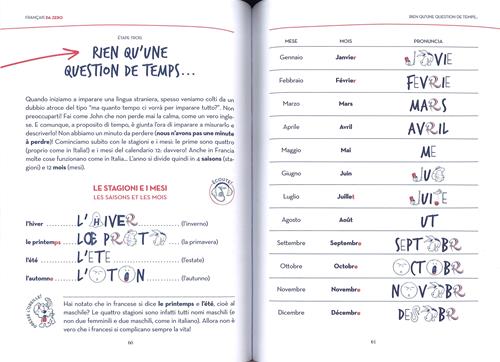 FRANÇAIS DA ZERO
ÉTAPE TROIS
RIEN QU'UNE
QUESTION DE TEMPS...
Quando iniziamo a imparare una lingua straniera, spesso veniamo colti da un
dubbio atroce del tipo "ma quanto tempo ci vorrà per imparare tutto?". Non
preoccuparti! Fai come John che non perde mai la calma, come un vero ingle-
se. E comunque, a proposito di tempo, è giunta l'ora di imparare a misurarlo e
descriverlo! Non abbiamo un minuto da perdere (nous n'avons pas une minute
à perdre)! Cominciamo subito con le stagioni e i mesi: le prime sono quattro
(proprio come in Italia!) e i mesi del calendario 12: davvero! Anche in Francia
molte cose funzionano come in Italia... L'anno si divide quindi in 4 saisons (sta-
gioni) e 12 mois (mesi).
ÉCOUTE!
LE STAGIONI E I MESI
LES SAISONS ET LES MOIS
l'hiver L'HIVER (l'inverno)
le printemps (la primavera)
l'été L'ETE (l'estate)
l'automne (l'autunno)
Hai notato che in francese si dice le printemps e l'été, cioè al
maschile? Le quattro stagioni sono infatti tutti nomi maschili (e
non due femminili e due maschili, come in italiano). Allora non è
vero che i francesi si complicano sempre la vita!
66
RIEN QU'UNE QUESTION DE TEMPS...
MESE MOIS PRONUNCIA
Gennaio Janvier
Febbraio Février FEVRIE
Marzo Mars MARS
Aprile Avril AVRIL
Maggio Mai ME
Giugno Juin
Luglio Juillet
Agosto Août UT
Settembre Septembre
Ottobre Octobre
Novembre Novembre
Dicembre Décembre
61